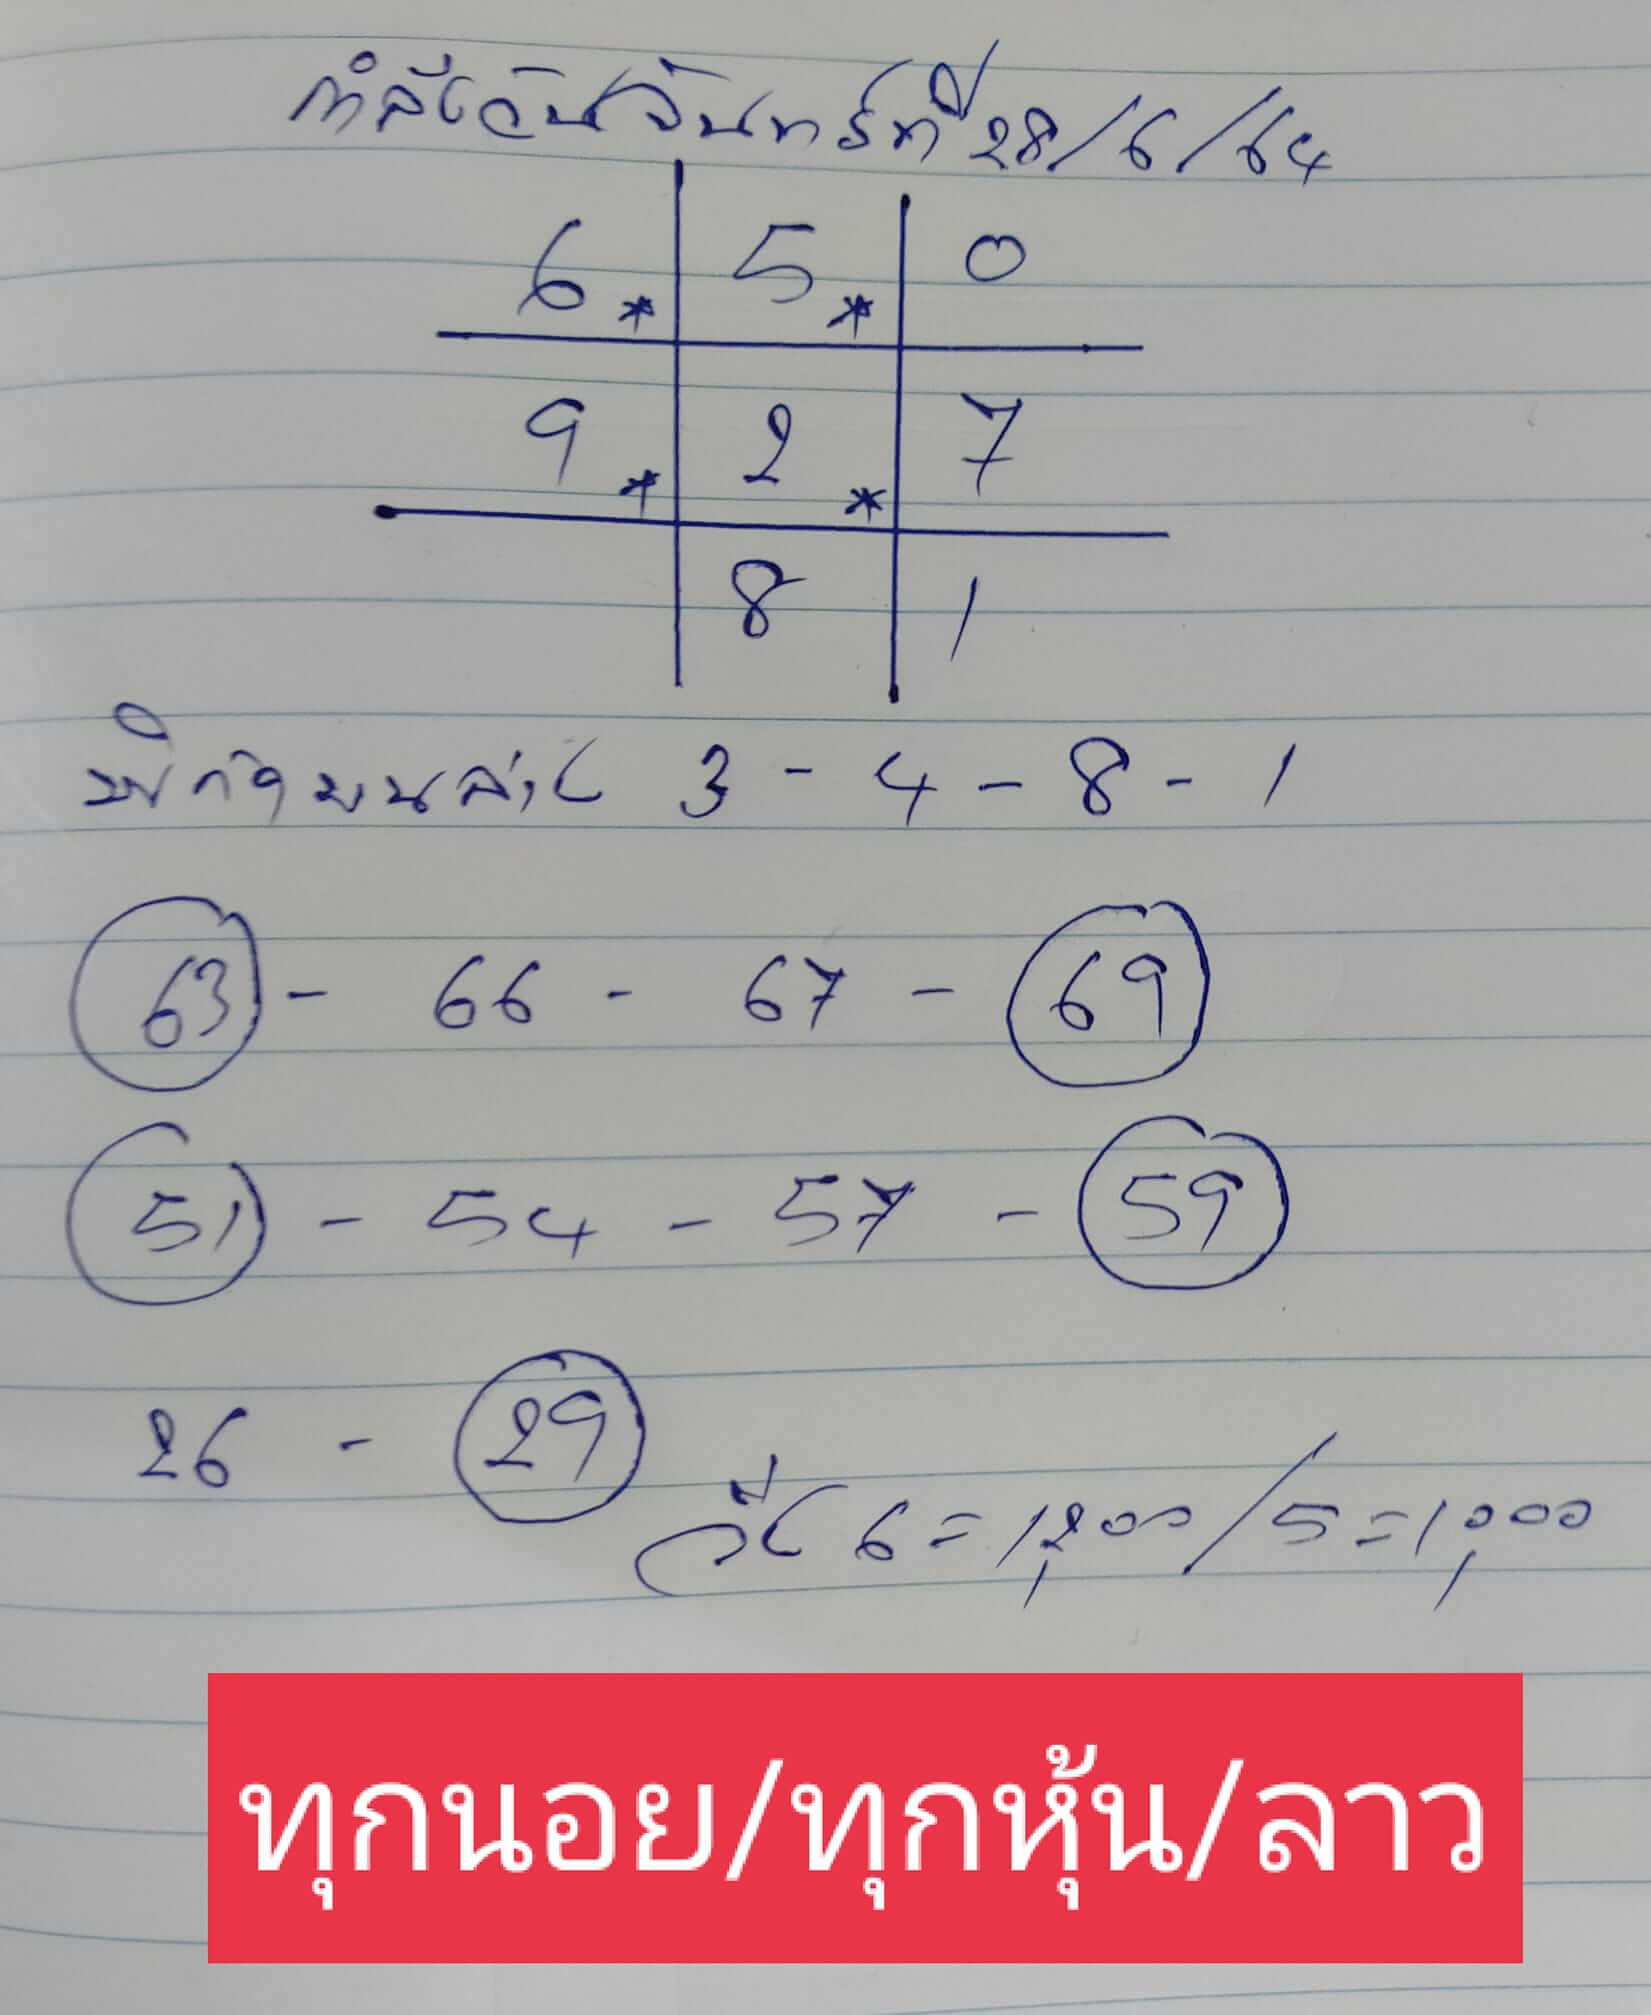 กำลังวันจันทร์ที่ 28/6/64
6* 5* 0
9* 2* 7
8 1
พิกัดบนล่าง 3 - 4 - 8 - 1
63 - 66 - 67 - 69
51 - 54 - 57 - 59
26 - 29
วิ่ง 6 = 1,200 / 5 = 1,000
ทุกนอย/ทุกหุ้น/ลาว